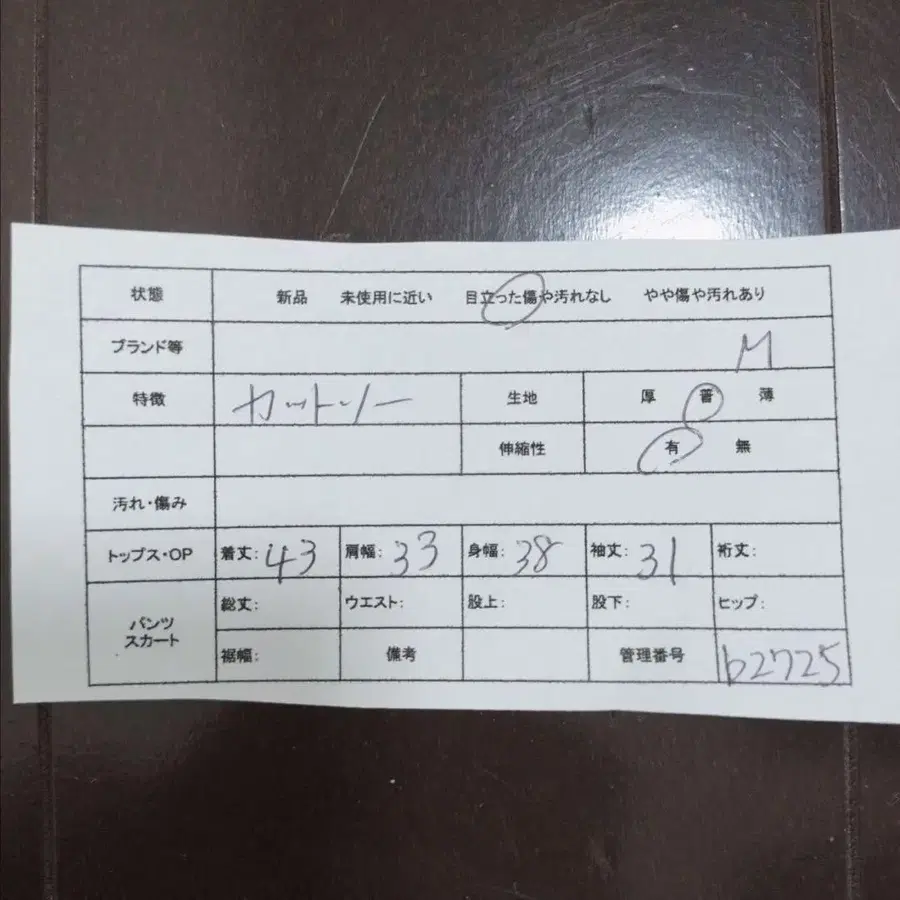 状態 新品 未使用に近い 目立った傷や汚れなし やや傷や汚れあり
ブランド等 M
特徴 カットソー 生地 厚 普 薄
伸縮性 有 無
汚れ・傷み
トップス・OP 着丈: 43 肩幅: 33 身幅: 38 袖丈: 31 裄丈:
パンツ スカート 総丈: ウエスト: 股上: 股下: ヒップ:
裾幅: 備考 管理番号 b2725